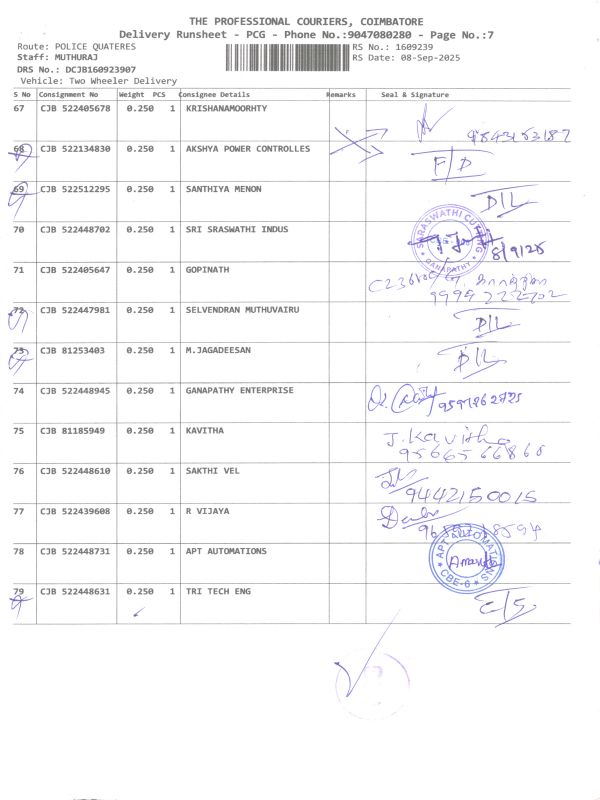 THE PROFESSIONAL COURIERS, COIMBATORE
Delivery Runsheet - PCG - Phone No.:9047080280 - Page No.:7
Route: POLICE QUATERES RS No.: 1609239
Staff: MUTHURAJ RS Date: 08-Sep-2025
DRS No.: DCJB160923907
Vehicle: Two Wheeler Delivery
S No Consignment No Weight PCS Consignee Details Remarks Seal & Signature
67 CJB 522405678 0.250 1 KRISHANAMOORHTY
9843153187
68 CJB 522134830 0.250 1 AKSHYA POWER CONTROLLES F/D
69 CJB 522512295 0.250 1 SANTHIYA MENON D/L
70 CJB 522448702 0.250 1 SRI SRASWATHI INDUS SARASWATHI CUTTING GANAPATHY 8/9/25
71 CJB 522405647 0.250 1 GOPINATH
9994222702
72 CJB 522447981 0.250 1 SELVENDRAN MUTHUVAIRU D/L
73 CJB 81253403 0.250 1 M.JAGADEESAN D/L
74 CJB 522448945 0.250 1 GANAPATHY ENTERPRISE
75 CJB 81185949 0.250 1 KAVITHA J. Kavitha
9566566860
76 CJB 522448610 0.250 1 SAKTHI VEL
9442150015
77 CJB 522439608 0.250 1 R VIJAYA
78 CJB 522448731 0.250 1 APT AUTOMATIONS APT AUTOMATIONS CBE-6
79 CJB 522448631 0.250 1 TRI TECH ENG